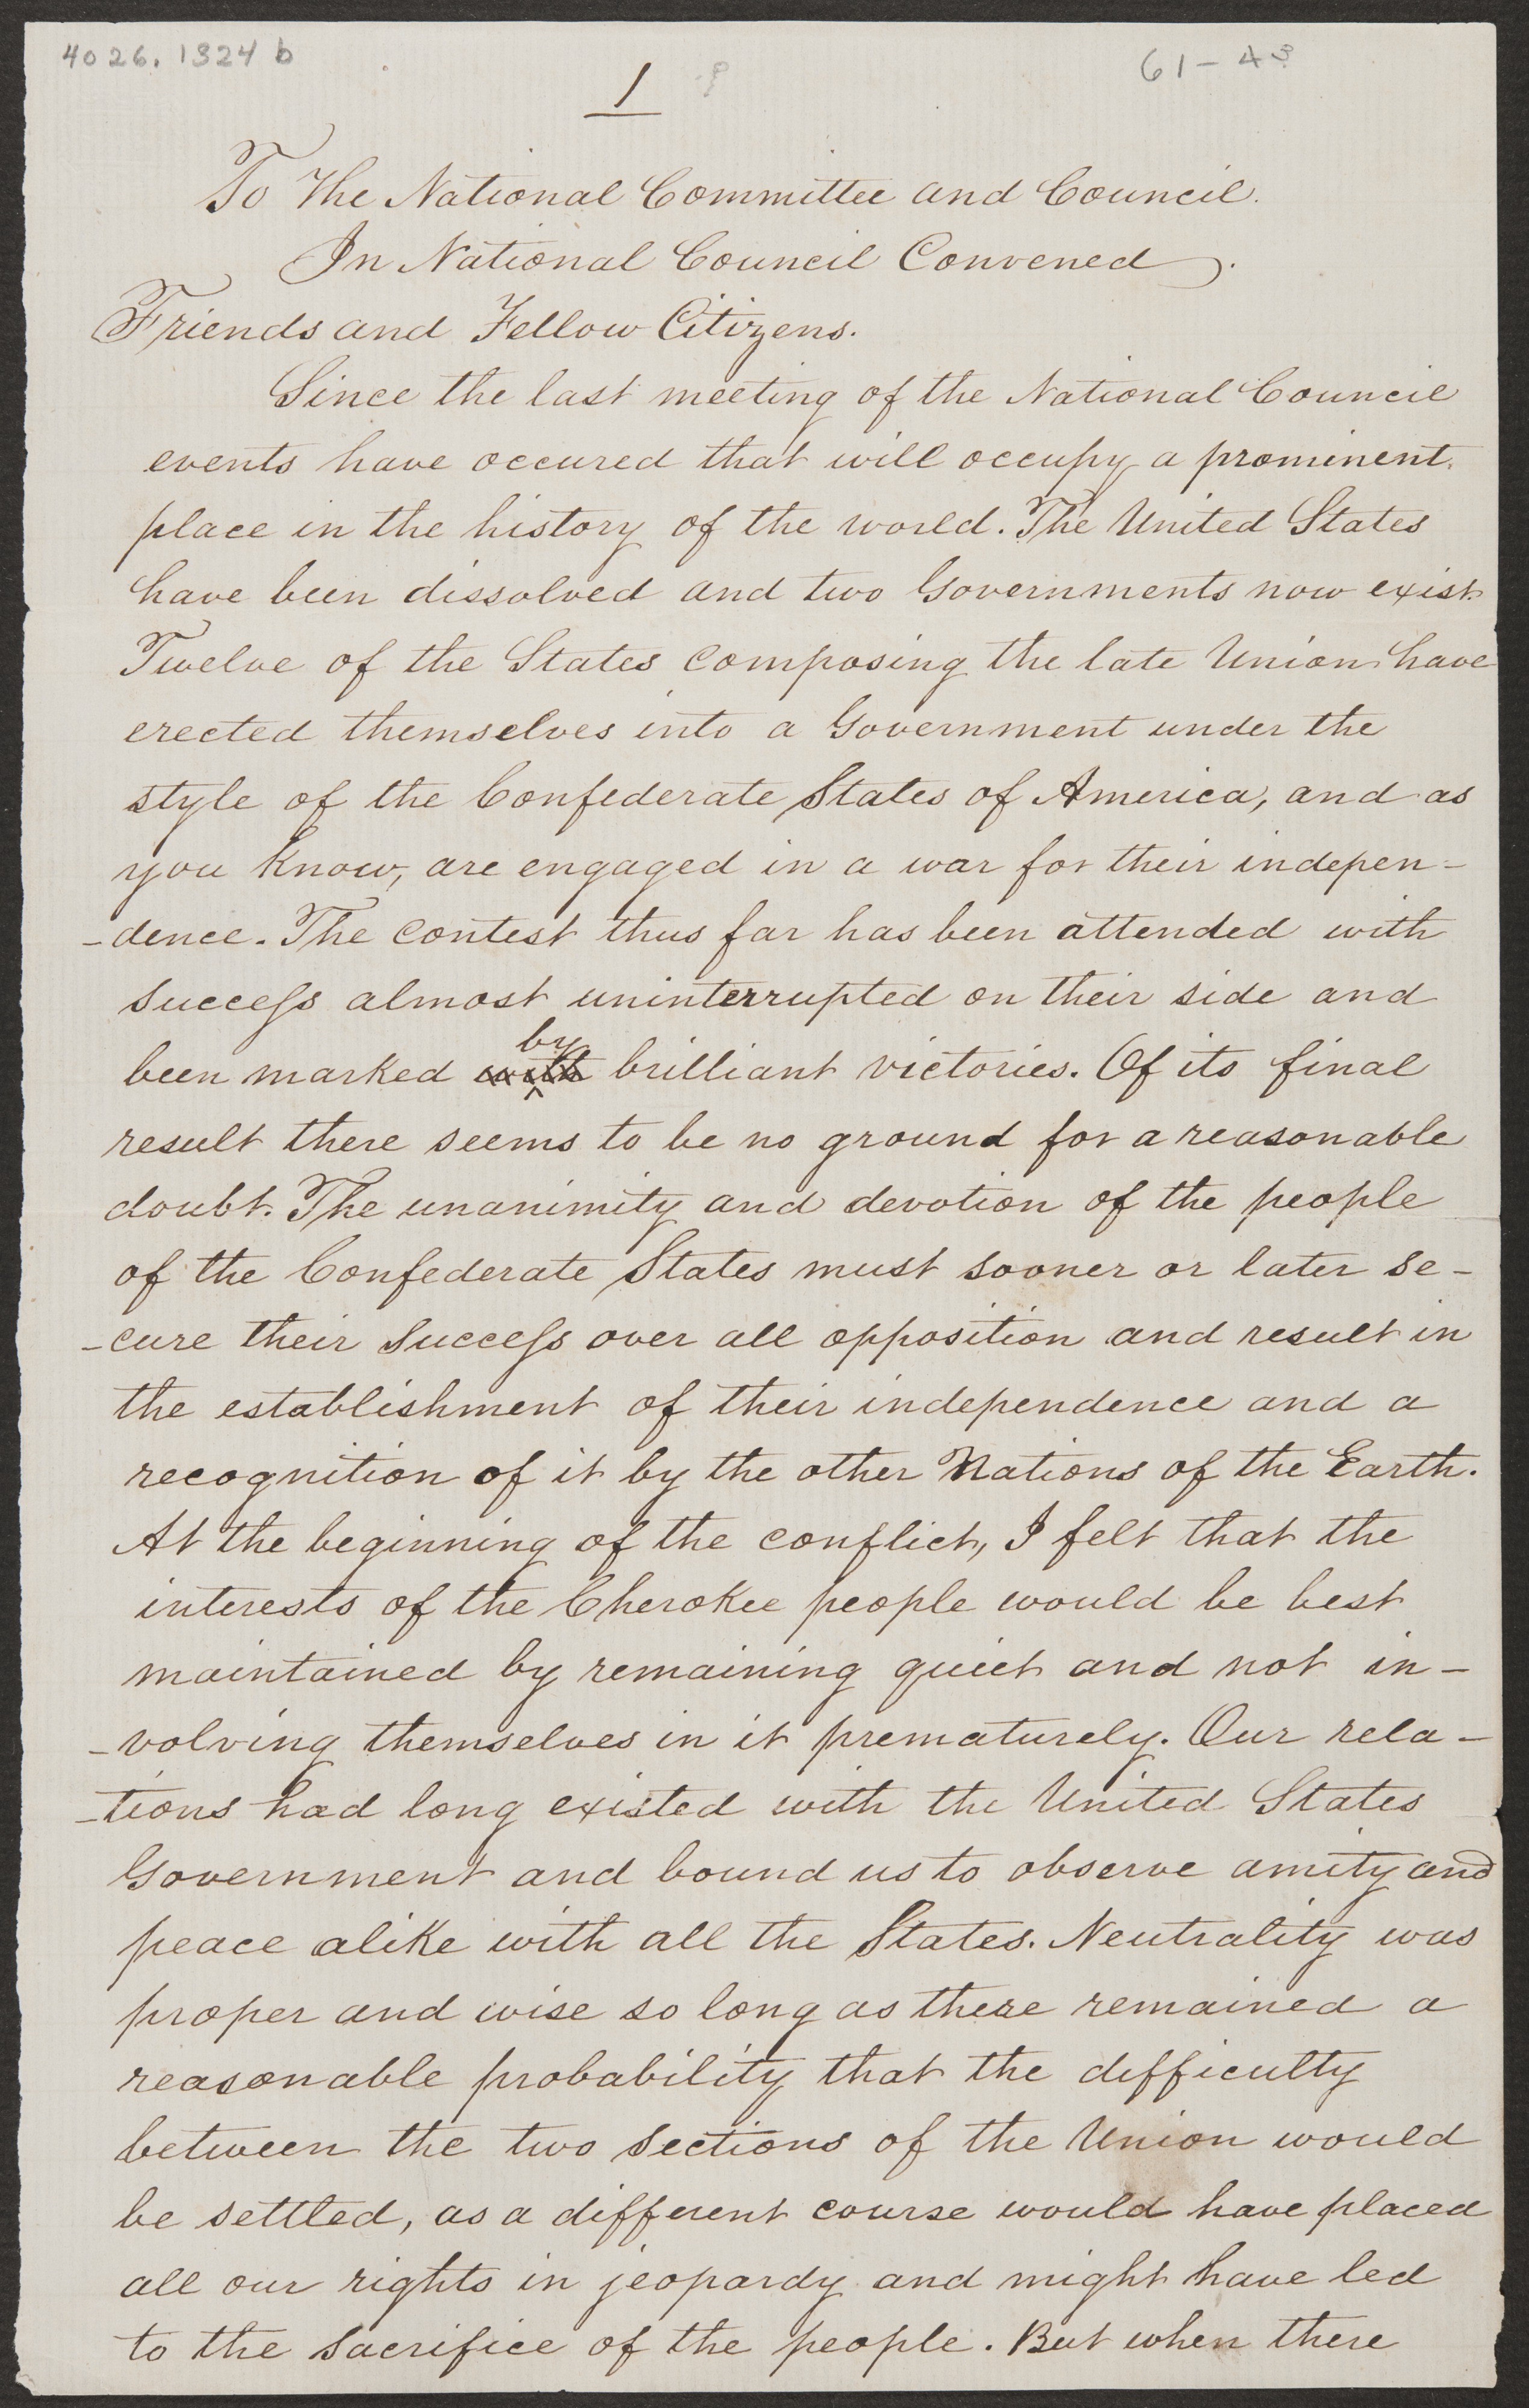 4026.1324 b
61-43
1
To The National Committee and Council.
In National Council Convened.
Friends and Fellow Citizens.
Since the last meeting of the National Council
events have occured that will occupy a prominent.
place in the history of the world. The United States
have been dissolved and two Governments now exist.
Twelve of the States composing the late Union have
erected themselves into a Government under the
style of the Confederate States of America, and as
you know, are engaged in a war for their indepen-
-dence. The contest thus far has been attended with
success almost uninterrupted on their side and
been marked ~~with~~ by brilliant victories. Of its final
result there seems to be no ground for a reasonable
doubt. The unanimity and devotion of the people
of the Confederate States must sooner or later se-
-cure their success over all opposition and result in
the establishment of their independence and a
recognition of it by the other Nations of the Earth.
At the beginning of the conflict, I felt that the
interests of the Cherokee people would be best
maintained by remaining quiet and not in-
-volving themselves in it prematurely. Our rela-
-tions had long existed with the United States
Government and bound us to observe amity and
peace alike with all the States. Neutrality was
proper and wise so long as there remained a
reasonable probability that the difficulty
between the two sections of the Union would
be settled, as a different course would have placed
all our rights in jeopardy and might have led
to the sacrifice of the people. But when there